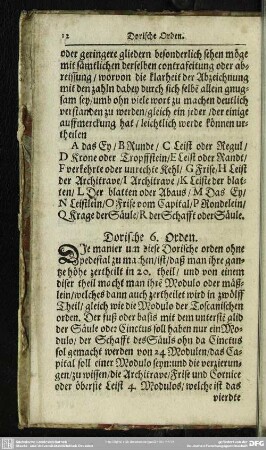 12 Dorische Orden.
oder geringere gliedern besonderlich sehen möge
mit sämtlichen derselben contrafeitung oder ab-
reissung / worvon die klarheit der Abzeichnung
mit den zahln dabey durch sich selbst allein gnug-
sam sey / umb ohn viele wort zu machen deutlich
verstanden zu werden / gleich ein jeder / der einige
auffmerckung hat / leichtlich werde können ur-
theilen
A das Ey / B Runde / C Leist oder Regul /
D Krone oder Tropffstein / E Leist oder Randt /
F verkehrte oder unrechte Kehl / G Frise / H Leist
der Architrave / I Architrave / K Leiste der blat-
ten / L Der blatten oder Abaus / M Das Ey /
N Leistlein / O Frise vom Capital / P Rondelein /
Q Krage der Säule / R der Schafft oder Säule.
Dorische 6. Orden.
Die manier um diese Dorische orden ohne
Pedestal zu machen / ist / daß man ihre gan-
ze höhe zertheilt in 20. theil / und von einem
diser theil macht man ihre Modulo oder mäß-
lein / welches dann auch zertheilet wird in zwölff
Theil / gleich wie die Modulo der Toscanischen
orden. Der fuß oder basis mit dem unterste glid
der Säule oder Cinctus soll haben nur ein Mo-
dulo / der Schafft des Säuls ohn da Cinctus
sol gemacht werden von 24 Modulen / das Ca-
pital soll einer Modulo seyn: und die verzierun-
gen / zu wissen / die Architrave / Frise und Cornice
oder öberste Leist 4. Modulos / welche ist das
vierdte